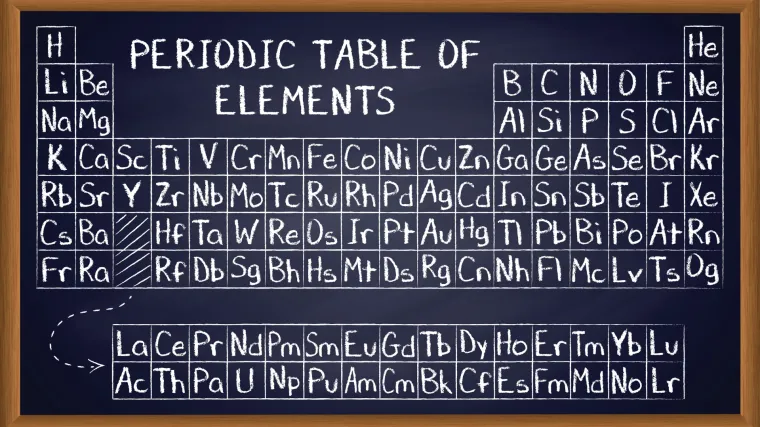 PERIODIC TABLE OF
ELEMENTS
H He
Li Be B C N O F Ne
Na Mg Al Si P S Cl Ar
K Ca Sc Ti V Cr Mn Fe Co Ni Cu Zn Ga Ge As Se Br Kr
Rb Sr Y Zr Nb Mo Tc Ru Rh Pd Ag Cd In Sn Sb Te I Xe
Cs Ba Hf Ta W Re Os Ir Pt Au Hg Tl Pb Bi Po At Rn
Fr Ra Rf Db Sg Bh Hs Mt Ds Rg Cn Nh Fl Mc Lv Ts Og
La Ce Pr Nd Pm Sm Eu Gd Tb Dy Ho Er Tm Yb Lu
Ac Th Pa U Np Pu Am Cm Bk Cf Es Fm Md No Lr